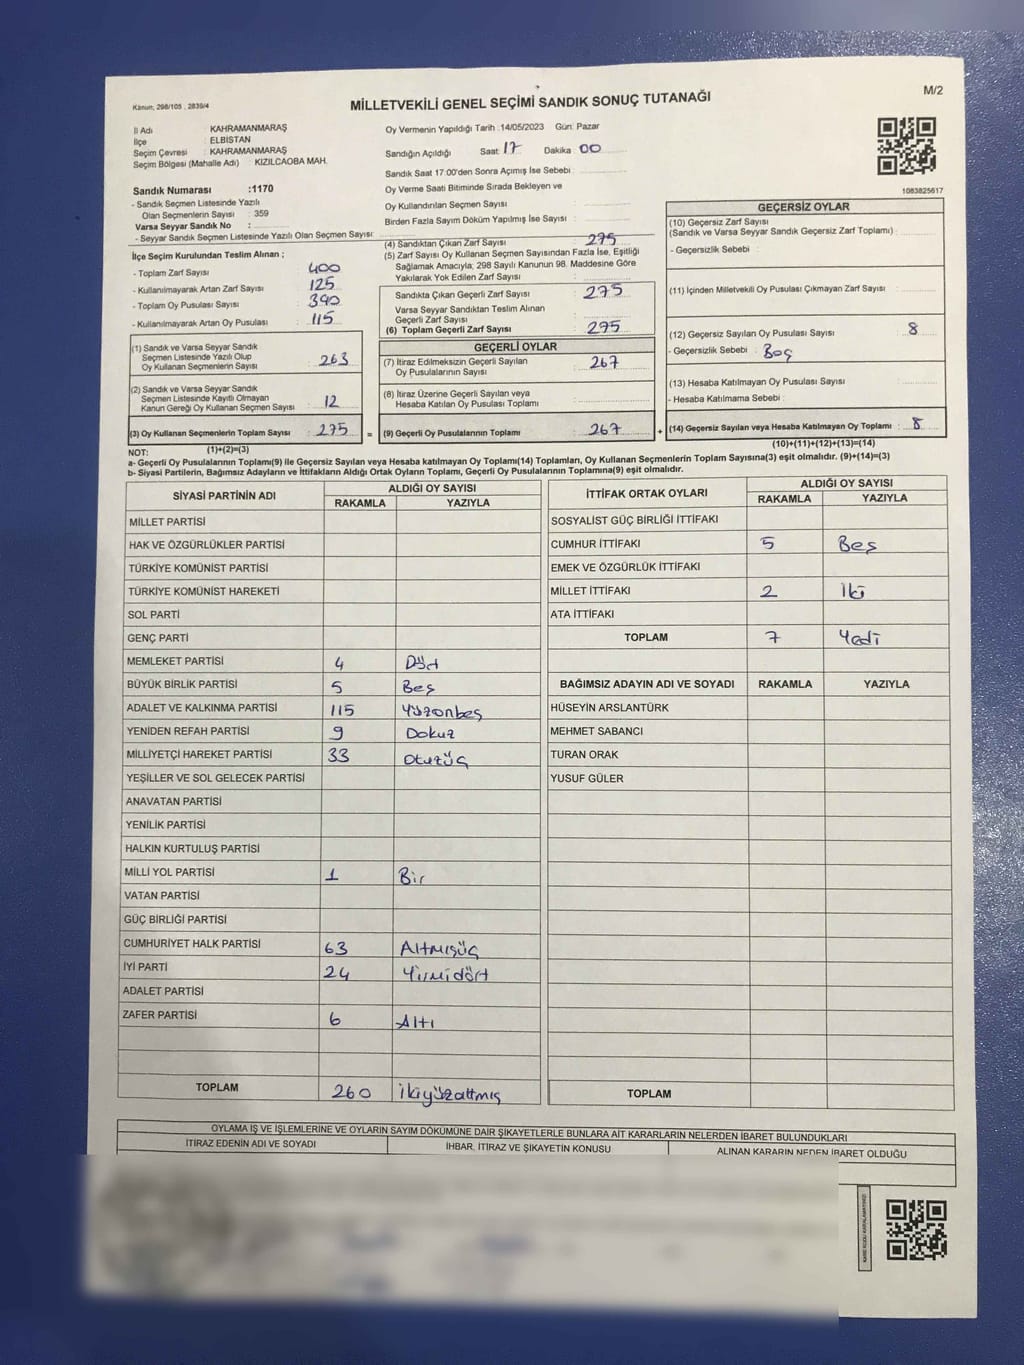 Kanun; 298/105 , 2839/4
MİLLETVEKİLİ GENEL SEÇİMİ SANDIK SONUÇ TUTANAĞI
M/2
İl Adı : KAHRAMANMARAŞ
İlçe : ELBİSTAN
Seçim Çevresi : KAHRAMANMARAŞ
Seçim Bölgesi (Mahalle Adı) : KIZILCAOBA MAH.
Sandık Numarası :1170
- Sandık Seçmen Listesinde Yazılı
Olan Seçmenlerin Sayısı : 359
Varsa Seyyar Sandık No :
- Seyyar Sandık Seçmen Listesinde Yazılı Olan Seçmen Sayısı:
Oy Vermenin Yapıldığı Tarih :14/05/2023 Gün: Pazar
Sandığın Açıldığı Saat: 17 Dakika: 00
Sandık Saat 17:00'den Sonra Açımış İse Sebebi :
Oy Verme Saati Bitiminde Sırada Bekleyen ve
Oy Kullandırılan Seçmen Sayısı :
Birden Fazla Sayım Döküm Yapılmış İse Sayısı :
1083825617
İlçe Seçim Kurulundan Teslim Alınan ;
- Toplam Zarf Sayısı : 400
- Kullanılmayarak Artan Zarf Sayısı : 125
- Toplam Oy Pusulası Sayısı : 390
- Kullanılmayarak Artan Oy Pusulası : 115
(1) Sandık ve Varsa Seyyar Sandık
Seçmen Listesinde Yazılı Olup
Oy Kullanan Seçmenlerin Sayısı : 263
(2) Sandık ve Varsa Seyyar Sandık
Seçmen Listesinde Kayıtlı Olmayan
Kanun Gereği Oy Kullanan Seçmen Sayısı : 12
(3) Oy Kullanan Seçmenlerin Toplam Sayısı : 275 =
(1)+(2)=(3)
(4) Sandıktan Çıkan Zarf Sayısı : 275
(5) Zarf Sayısı Oy Kullanan Seçmen Sayısından Fazla İse, Eşitliği
Sağlamak Amacıyla; 298 Sayılı Kanunun 98. Maddesine Göre
Yakılarak Yok Edilen Zarf Sayısı :
Sandıkta Çıkan Geçerli Zarf Sayısı : 275
Varsa Seyyar Sandıktan Teslim Alınan
Geçerli Zarf Sayısı :
(6) Toplam Geçerli Zarf Sayısı : 275
GEÇERLİ OYLAR
(7) İtiraz Edilmeksizin Geçerli Sayılan
Oy Pusulalarının Sayısı : 267
(8) İtiraz Üzerine Geçerli Sayılan veya
Hesaba Katılan Oy Pusulası Toplamı :
(9) Geçerli Oy Pusulalarının Toplamı : 267 +
GEÇERSİZ OYLAR
(10) Geçersiz Zarf Sayısı
(Sandık ve Varsa Seyyar Sandık Geçersiz Zarf Toplamı) :
- Geçersizlik Sebebi :
(11) İçinden Milletvekili Oy Pusulası Çıkmayan Zarf Sayısı :
(12) Geçersiz Sayılan Oy Pusulası Sayısı : 8
- Geçersizlik Sebebi : Boş
(13) Hesaba Katılmayan Oy Pusulası Sayısı :
- Hesaba Katılmama Sebebi :
(14) Geçersiz Sayılan veya Hesaba Katılmayan Oy Toplamı : 8
(10)+(11)+(12)+(13)=(14)
NOT:
a- Geçerli Oy Pusulalarının Toplamı(9) ile Geçersiz Sayılan veya Hesaba katılmayan Oy Toplamı(14) Toplamları, Oy Kullanan Seçmenlerin Toplam Sayısına(3) eşit olmalıdır. (9)+(14)=(3)
b- Siyasi Partilerin, Bağımsız Adayların ve İttifakların Aldığı Ortak Oyların Toplamı, Geçerli Oy Pusulalarının Toplamına(9) eşit olmalıdır.
SİYASİ PARTİNİN ADI ALDIĞI OY SAYISI
RAKAMLA YAZIYLA
MİLLET PARTİSİ
HAK VE ÖZGÜRLÜKLER PARTİSİ
TÜRKİYE KOMÜNİST PARTİSİ
TÜRKİYE KOMÜNİST HAREKETİ
SOL PARTİ
GENÇ PARTİ
MEMLEKET PARTİSİ 4 Dört
BÜYÜK BİRLİK PARTİSİ 5 Beş
ADALET VE KALKINMA PARTİSİ 115 Yüzonbeş
YENİDEN REFAH PARTİSİ 9 Dokuz
MİLLİYETÇİ HAREKET PARTİSİ 33 Otuzüç
YEŞİLLER VE SOL GELECEK PARTİSİ
ANAVATAN PARTİSİ
YENİLİK PARTİSİ
HALKIN KURTULUŞ PARTİSİ
MİLLİ YOL PARTİSİ 1 Bir
VATAN PARTİSİ
GÜÇ BİRLİĞİ PARTİSİ
CUMHURİYET HALK PARTİSİ 63 Altmışüç
İYİ PARTİ 24 Yirmidört
ADALET PARTİSİ
ZAFER PARTİSİ 6 Altı
TOPLAM 260 ikiyüzaltmış
İTTİFAK ORTAK OYLARI ALDIĞI OY SAYISI
RAKAMLA YAZIYLA
SOSYALİST GÜÇ BİRLİĞİ İTTİFAKI
CUMHUR İTTİFAKI 5 Beş
EMEK VE ÖZGÜRLÜK İTTİFAKI
MİLLET İTTİFAKI 2 İki
ATA İTTİFAKI
TOPLAM 7 Yedi
BAĞIMSIZ ADAYIN ADI VE SOYADI RAKAMLA YAZIYLA
HÜSEYİN ARSLANTÜRK
MEHMET SABANCI
TURAN ORAK
YUSUF GÜLER
TOPLAM
OYLAMA İŞ VE İŞLEMLERİNE VE OYLARIN SAYIM DÖKÜMÜNE DAİR ŞİKAYETLERLE BUNLARA AİT KARARLARIN NELERDEN İBARET BULUNDUKLARI
İTİRAZ EDENİN ADI VE SOYADI İHBAR, İTİRAZ VE ŞİKAYETİN KONUSU ALINAN KARARIN NEDEN İBARET OLDUĞU